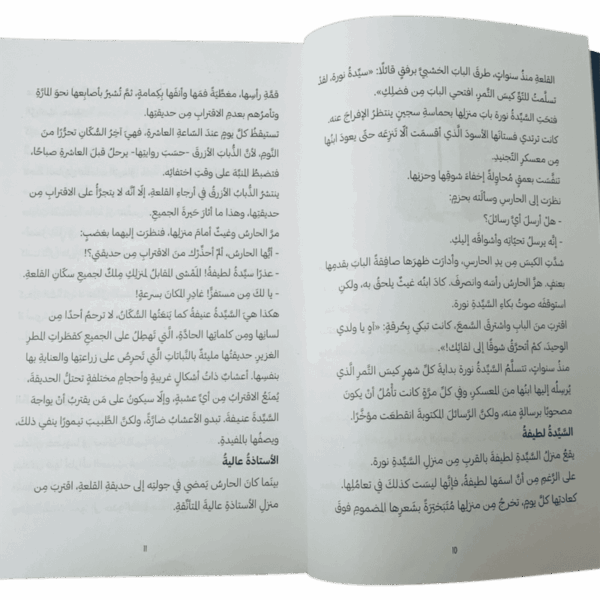 القلعةِ منذُ سنواتٍ، طرقَ البابَ الخشبيَّ برفقٍ قائلًا: «سيِّدةُ نورة، لقدْ
تسلَّمتُ للتوِّ كيسَ التَّمرِ. افتحي البابَ مِن فضلِكِ».
فتحَتِ السَّيِّدةُ نورة بابَ منزلِها بحماسةِ سجينٍ ينتظرُ الإفراجَ عنه.
كانت ترتدي فستانَها الأسودَ الَّذي أقسمَت ألَّا تنزِعَه حتَّى يعودَ ابنُها
مِن معسكرِ التَّجنيدِ.
تنفَّسَت بعمقٍ مُحاوِلةً إخفاءَ شوقِها وحزنِها.
نظرَت إلى الحارسِ وسألَتْه بحزمٍ:
- هل أرسلَ أيَّ رسائلَ؟
- إنَّه يرسلُ تحيَّاتِه وأشواقَه إليكِ.
شدَّتِ الكيسَ مِن يدِ الحارسِ، وأدارَت ظهرَها صافِقةً البابَ بقدمِها
بعنفٍ. هزَّ الحارسُ رأسَه وانصرفَ. كادَ ابنُه غيثٌ يلحقُ به، ولكنِ
استوقفَه صوتُ بكاءِ السَّيِّدةِ نورة.
اقتربَ مِنَ البابِ واسترقَ السَّمعَ، كانت تبكي بحُرقةٍ: «آهٍ يا ولدي
الوحيدَ، كمْ أتحرَّقُ شوقًا إلى لقائِكَ!».
منذُ سنواتٍ، تتسلَّمُ السَّيِّدةُ نورة بدايةَ كلِّ شهرٍ كيسَ التَّمرِ الَّذي
يُرسِلُه إليها ابنُها مِنَ المعسكرِ، وفي كلِّ مرَّةٍ كانت تأمُلُ أنْ يكونَ
مصحوبًا برسالةٍ منه، ولكنَّ الرَّسائلَ المكتوبةَ انقطعَت مؤخَّرًا.
السَّيِّدةُ لطيفةُ
يقعُ منزلُ السَّيِّدةِ لطيفةَ بالقربِ مِن منزلِ السَّيِّدةِ نورة.
على الرَّغمِ مِن أنَّ اسمَها لطيفةُ، فإنَّها ليست كذلكَ في تعامُلِها.
كعادتِها كلَّ يومٍ، تخرجُ مِن منزلِها مُتَبَختِرَةً بشَعرِها المضمومِ فوقَ
10
قمَّةِ رأسِها، مغطِّيَةً فمَها وأنفَها بكِمامةٍ، ثمَّ تُشيرُ بأصابعِها نحوَ المارَّةِ
وتأمرُهم بعدمِ الاقترابِ مِن حديقتِها.
تستيقظُ كلَّ يومٍ عندَ السَّاعةِ العاشرةِ، فهيَ آخِرُ السُّكَّانِ تحرُّرًا مِنَ
النَّومِ، لأنَّ الذُّبابَ الأزرقَ -حسَبَ روايتِها- يرحلُ قبلَ العاشرةِ صباحًا،
فتضبطُ المنبِّهَ على وقتِ اختفائِه.
ينتشرُ الذُّبابُ الأزرقُ في أرجاءِ القلعةِ، إلَّا أنَّه لا يتجرَّأُ على الاقترابِ مِن
حديقتِها، وهذا ما أثارَ حَيرةَ الجميعِ.
مرَّ الحارسُ وغيثٌ أمامَ منزلِها، فنظرَت إليهما بغضبٍ:
- أيُّها الحارسُ، ألمْ أحذِّرْكَ مِنَ الاقترابِ مِن حديقتي؟!
- عذرًا سيِّدةُ لطيفةُ! المَمْشى المقابلُ لمنزلِكِ مِلكٌ لجميعِ سكَّانِ القلعةِ.
- يا لكَ مِن مستفزٍّ! غادِرِ المكانَ بسرعةٍ!
هكذا هيَ السَّيِّدةُ عنيفة كما يَنعَتُها السُّكَّانُ، لا ترحمُ أحدًا مِن
لسانِها ومِن كلماتِها الحادَّةِ، الَّتي تَهطِلُ على الجميعِ كقَطَراتِ المطرِ
الغزيرِ. حديقتُها مليئةٌ بالنَّباتاتِ الَّتي تَحرِصُ على زراعتِها والعنايةِ بها
بنفسِها. أعشابٌ ذاتُ أشكالٍ غريبةٍ وأحجامٍ مختلفةٍ تحتلُّ الحديقةَ،
يُمنَعُ الاقترابُ مِن أيِّ عشبةٍ، وإلَّا سيكونُ على مَن يقتربُ أنْ يواجهَ
السَّيِّدةَ عنيفة. تبدو الأعشابُ ضارَّةً، ولكنَّ الطَّبيبَ تيمورًا ينفي ذلكَ،
ويصفُها بالمفيدةِ.
الأستاذةُ عاليةُ
بينَما كانَ الحارسُ يَمضي في جولتِه إلى حديقةِ القلعةِ، اقتربَ مِن
منزلِ الأستاذةِ عاليةَ المتألِّقةِ.
11